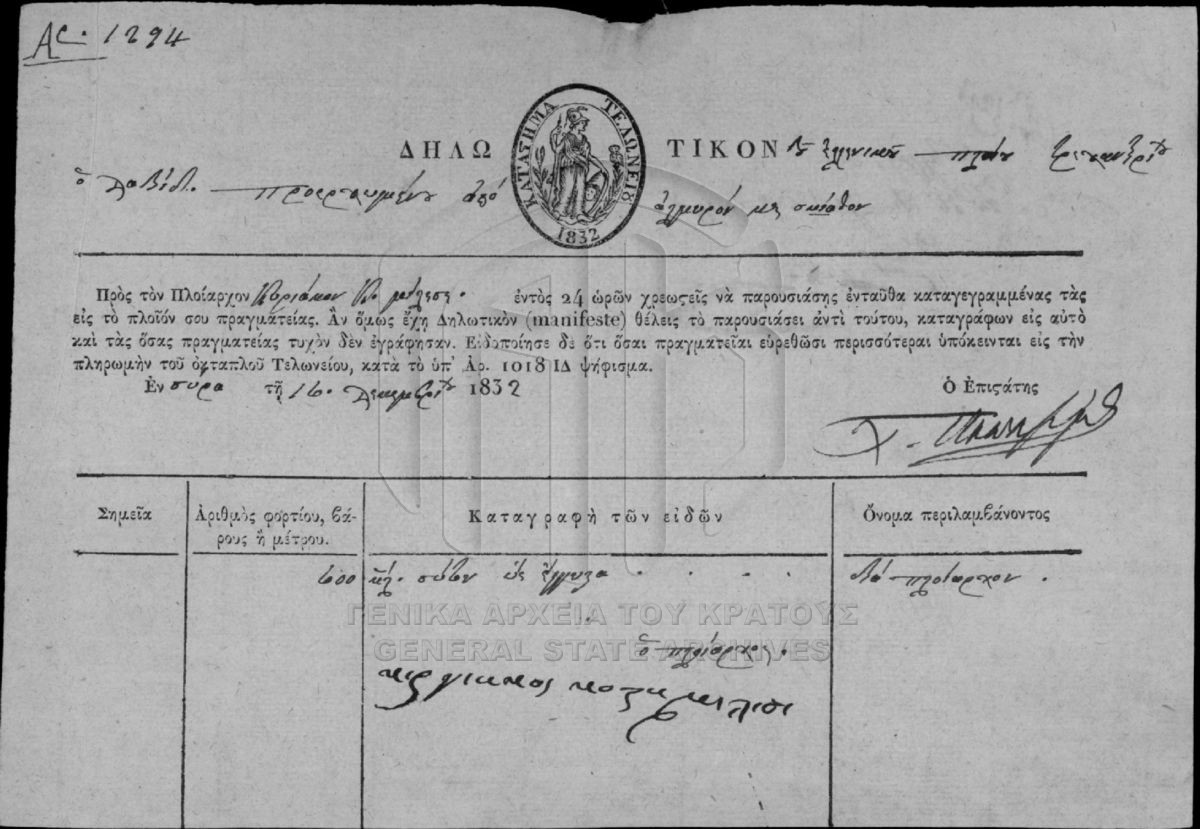 Ας. 1294
ΚΑΤΑΣΤΗΜΑ ΤΕΛΩΝΕΙΟ
1832
ΔΗΛΩ ΤΙΚΟΝ
ὁ Δαβίδ. προερχομένου ἀπό ἁλμυρόν με σκίαθον
Πρὸς τὸν Πλοίαρχον Κυριάκον Κ. ἐντὸς 24 ὡρῶν χρεωςεῖς νὰ παρουσιάσῃς ἐνταῦθα καταγεγραμμένας τὰς
εἰς τὸ πλοῖόν σου πραγματείας. Ἂν ὅμως ἔχῃ Δηλωτικὸν (manifeste) θέλεις τὸ παρουσιάσει ἀντὶ τούτου, καταγράφων εἰς αὐτὸ
καὶ τὰς ὅσας πραγματείας τυχὸν δὲν ἐγράφησαν. Εἰδοποίησε δὲ ὅτι ὅσαι πραγματεῖαι εὑρεθῶσι περισσότεραι ὑπόκεινται εἰς τὴν
πληρωμὴν τοῦ ὀκταπλοῦ Τελωνείου, κατὰ τὸ ὑπ' Ἀρ. 1018 ΙΔ ψήφισμα.
Ἐν σύρα τῇ 16. Δεκεμβρίου 1832 Ὁ Ἐπιςάτης
Σημεῖα Ἀριθμὸς φορτίου, βά- Καταγραφὴ τῶν εἰδῶν Ὄνομα περιλαμβάνοντος
ρους ἢ μέτρου.
600 κιλ. πλοίαρχον.
ΓΕΝΙΚΑ ΑΡΧΕΙΑ ΤΟΥ ΚΡΑΤΟΥΣ
GENERAL STATE ARCHIVES
ὁ πλοίαρχος.